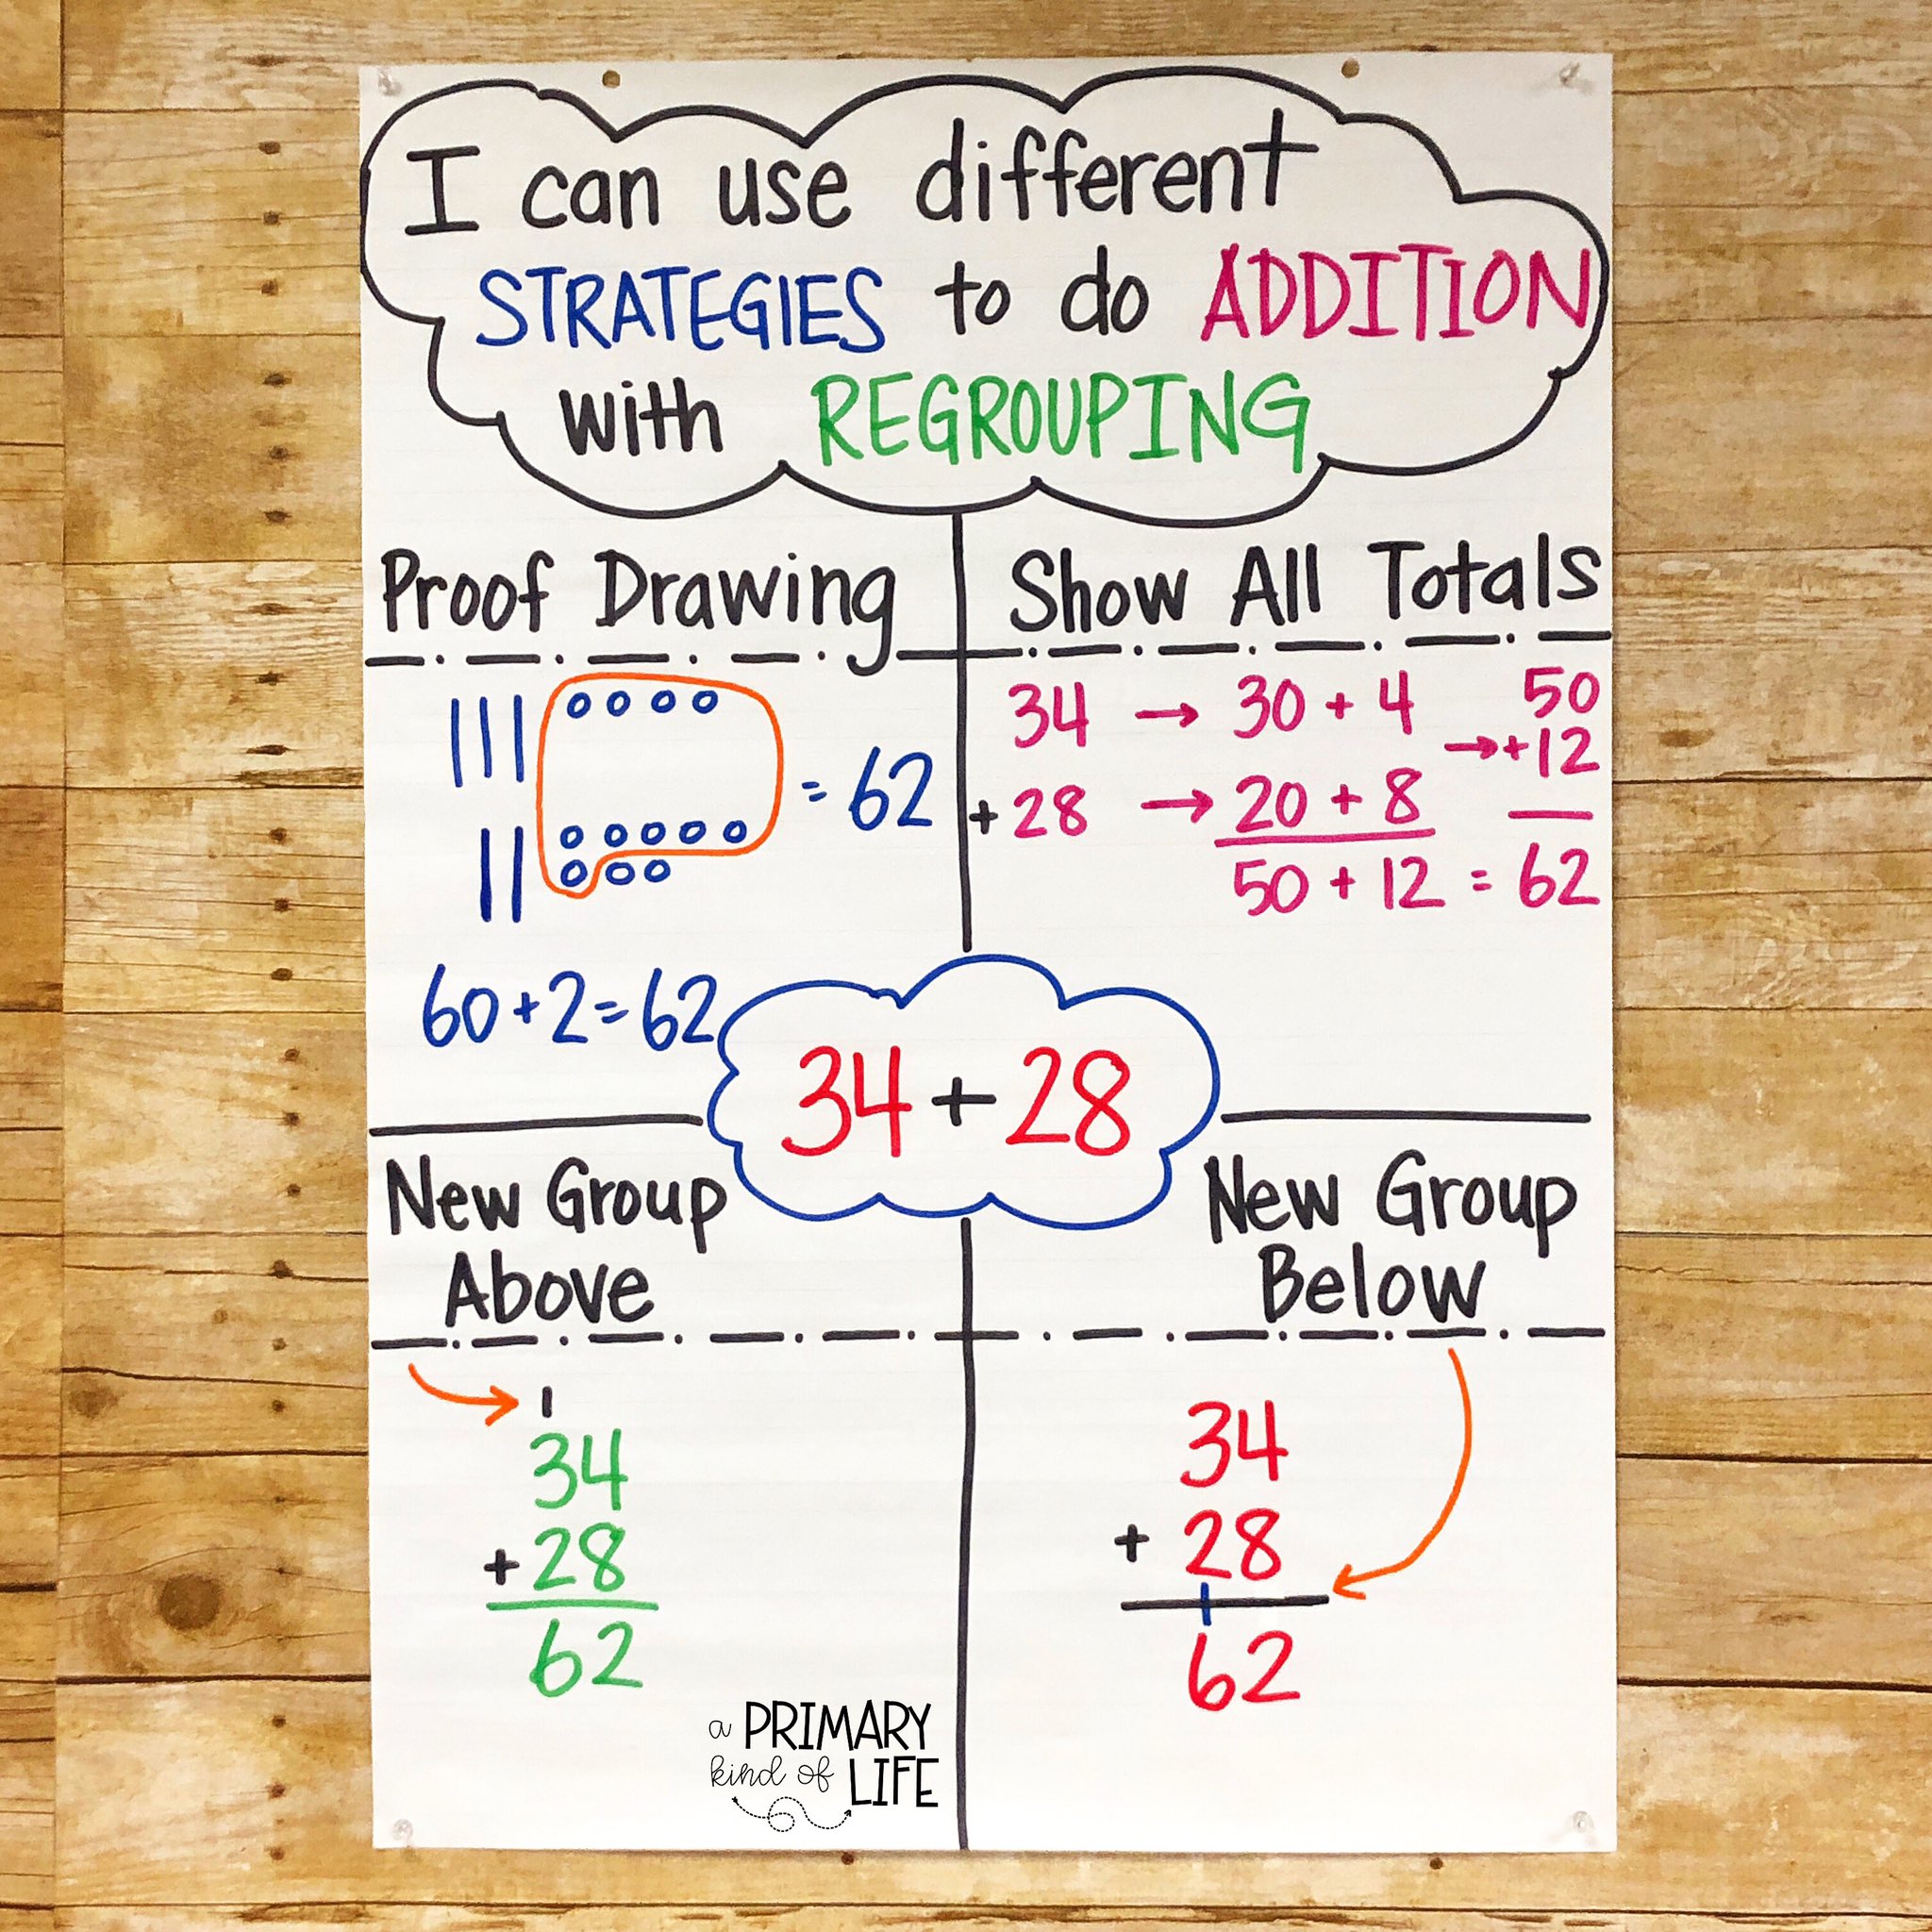 I can use different
STRATEGIES to do ADDITION
with REGROUPING
Proof Drawing
= 62
60+2=62
Show All Totals
34 → 30 + 4
+ 28 → 20 + 8
50 + 12 = 62
50
→+12
34 + 28
New Group
Above
1
34
+ 28
62
New Group
Below
34
+ 28
1
62
a PRIMARY
kind of LIFE